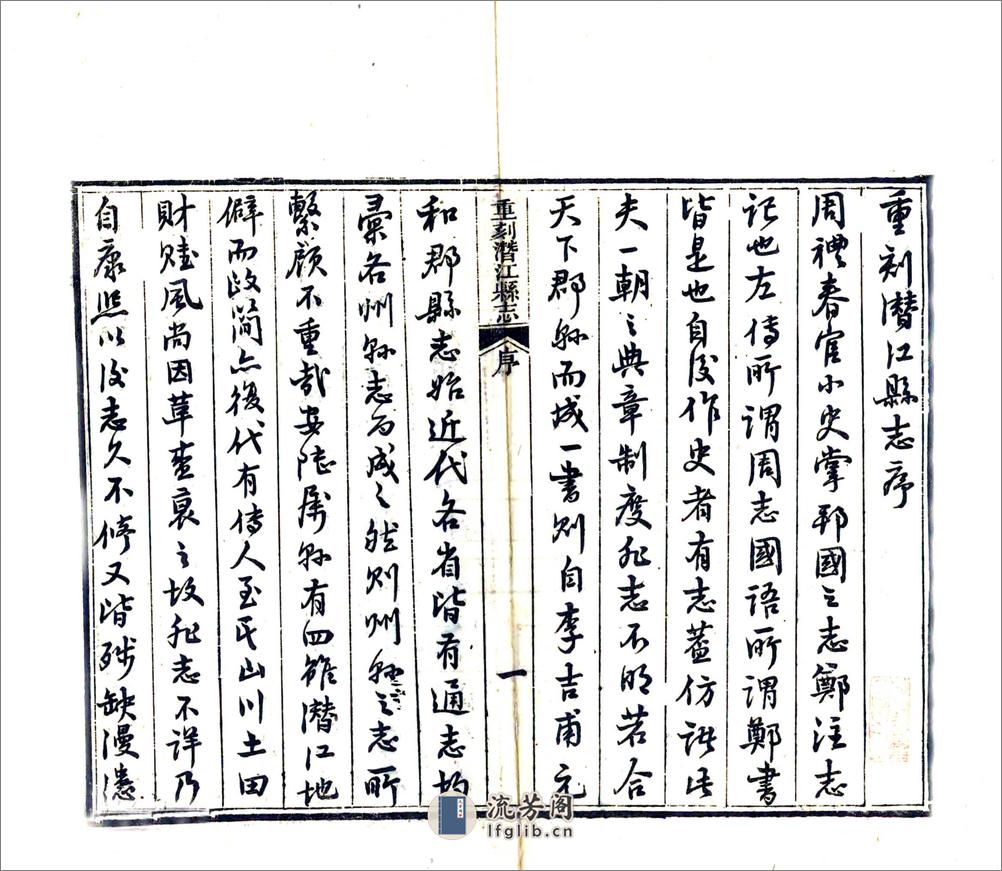 重刻潛江縣志序
周禮春官小史掌邦國之志鄭注志
記也左傳所謂周志國語所謂鄭書
皆是也自後作史者有志蓋仿諸此
夫一朝之典章制度非志不明若合
天下郡縣而成一書則自李吉甫元
重刻潛江縣志 序 一
和郡縣志始近代各省皆有通志均
彙各州縣志而成之然則州縣之志所
繫顧不重哉安陸屬縣有四雖潛江地
僻而政簡亦後代有傳人至氏山川土田
財賦風尚因革盛衰之故非志不詳乃
自康熙以後志久不修又皆殘缺漫漶
流芳阁
lfglib.cn